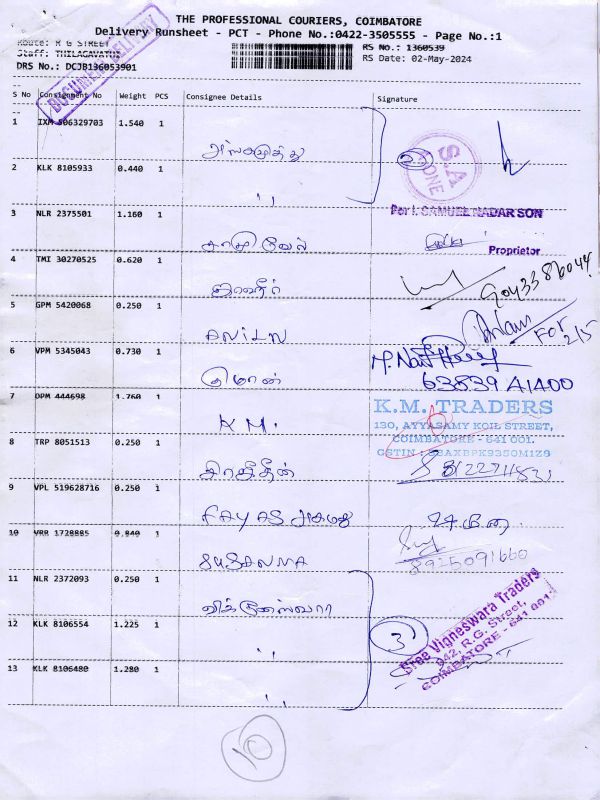 THE PROFESSIONAL COURIERS, COIMBATORE
Delivery Runsheet - PCT - Phone No.:0422-3505555 - Page No.:1
Route: R G STREET
Staff: THILAGAVATHI
RS No.: 1360539
DRS No.: DCJB136053901
RS Date: 02-May-2024
DOCUMENT DELIVERY
S No Consignment No Weight PCS Consignee Details Signature
1 IXM 506329703 1.540 1
2
S.A ZONE
2 KLK 8105933 0.440 1 ,,
Per I. SAMUEL NADAR SON
3 NLR 2375501 1.160 1
Proprietor
4 TMI 30270525 0.620 1 ஜாஹீர்
9043386044
5 GPM 5420068 0.250 1
FOR 2/5
6 VPM 5345043 0.730 1
63839 41400
7 OPM 444698 1.760 1 K M.
K.M. TRADERS
130, AYYASAMY KOIL STREET,
COIMBATORE - 641 001.
GSTIN : 33AXBPK9350M1Z9
8 TRP 8051513 0.250 1
9 VPL 519628716 0.250 1 FAYAS அகமது
10 VRR 1728885 0.840 1
8925091660
11 NLR 2372093 0.250 1 விக்னேஸ்வரா
12 KLK 8106554 1.225 1 ,,
3
Sree Vigneswara Traders
942, R.G. Street,
COIMBATORE - 641 001
13 KLK 8106480 1.280 1 ,,
10